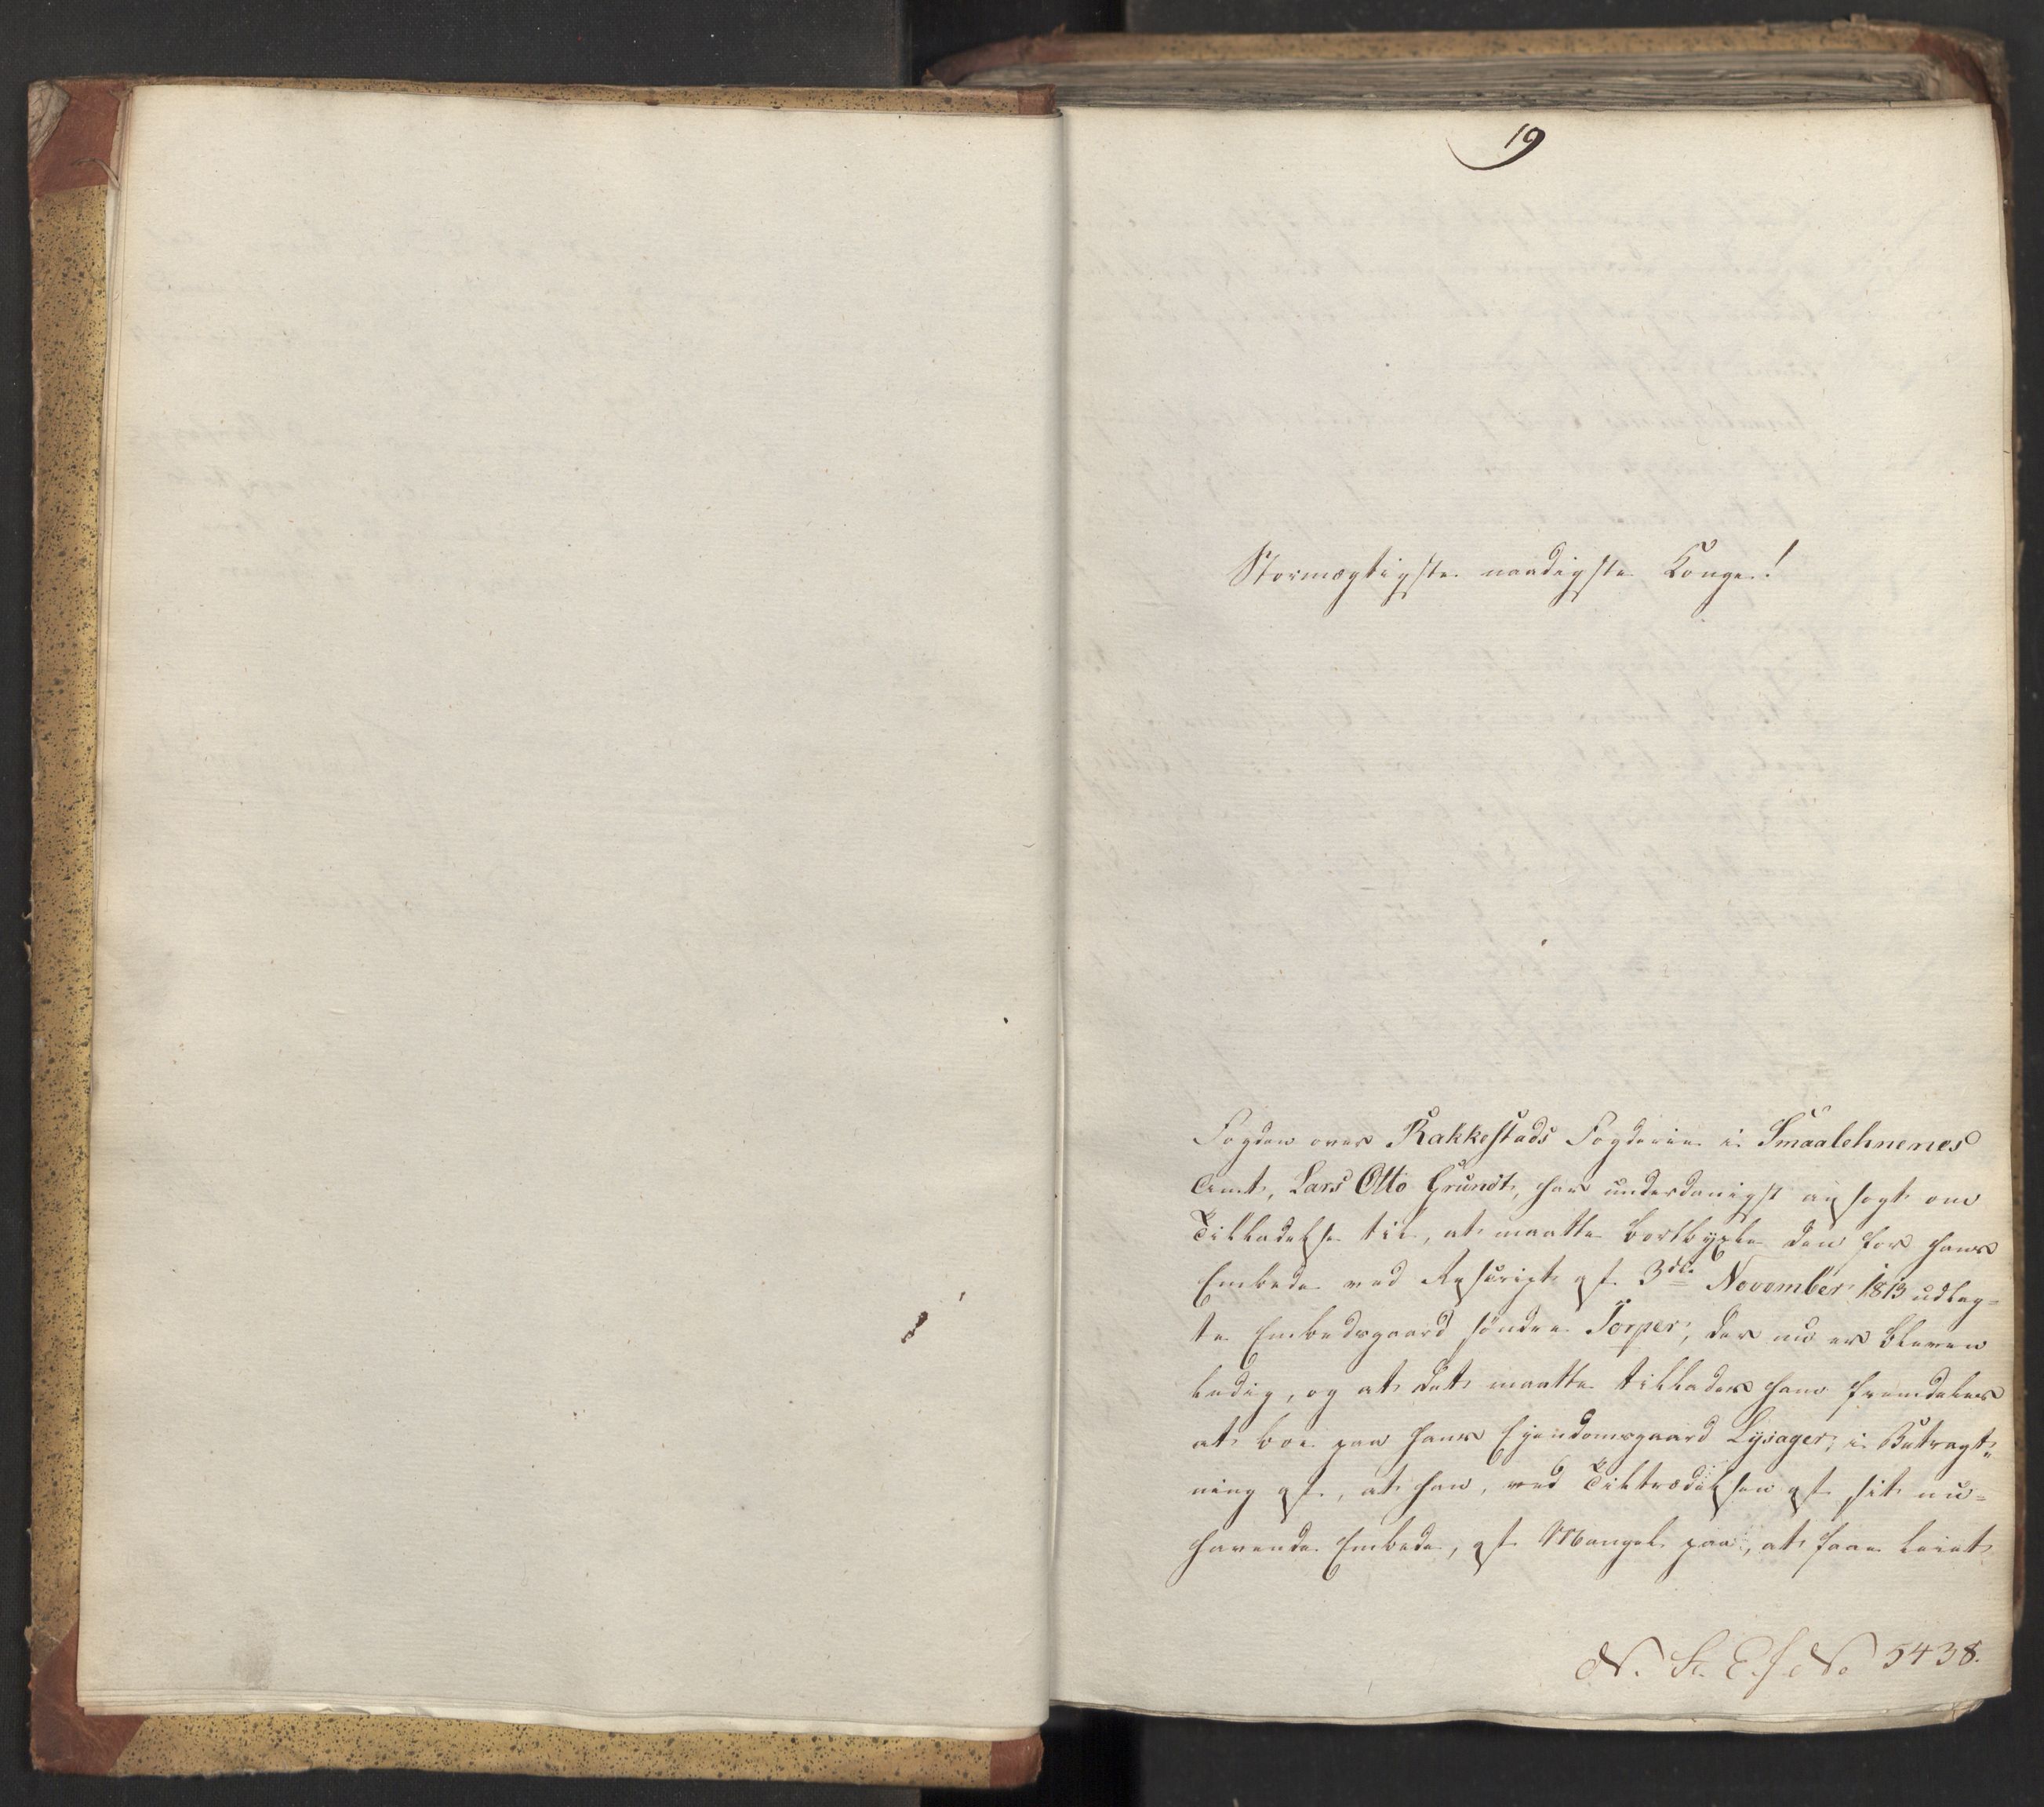 19
Stormægtigste naadigste Konge!
Fogden over Rakkestads Fogderie i Smaalehnenes
Amt, Lars Otto Grundt, har underdanigst ansøgt om
Tilladelse til, at maatte bortbyxle den for hans
Embede ved Rescript af 3die November 1813 udlag-
te Embedsgaard søndre Torper, der nu er bleven
ledig, og at det maatte tillades ham fremdeles
at boe paa hans Eiendomsgaard Lysager, i Betragt-
ning af, at han, ved Tiltrædelsen af sit nu-
havende Embede, af Mangel paa, at faae leiet
N. St. E. f. No 5438.